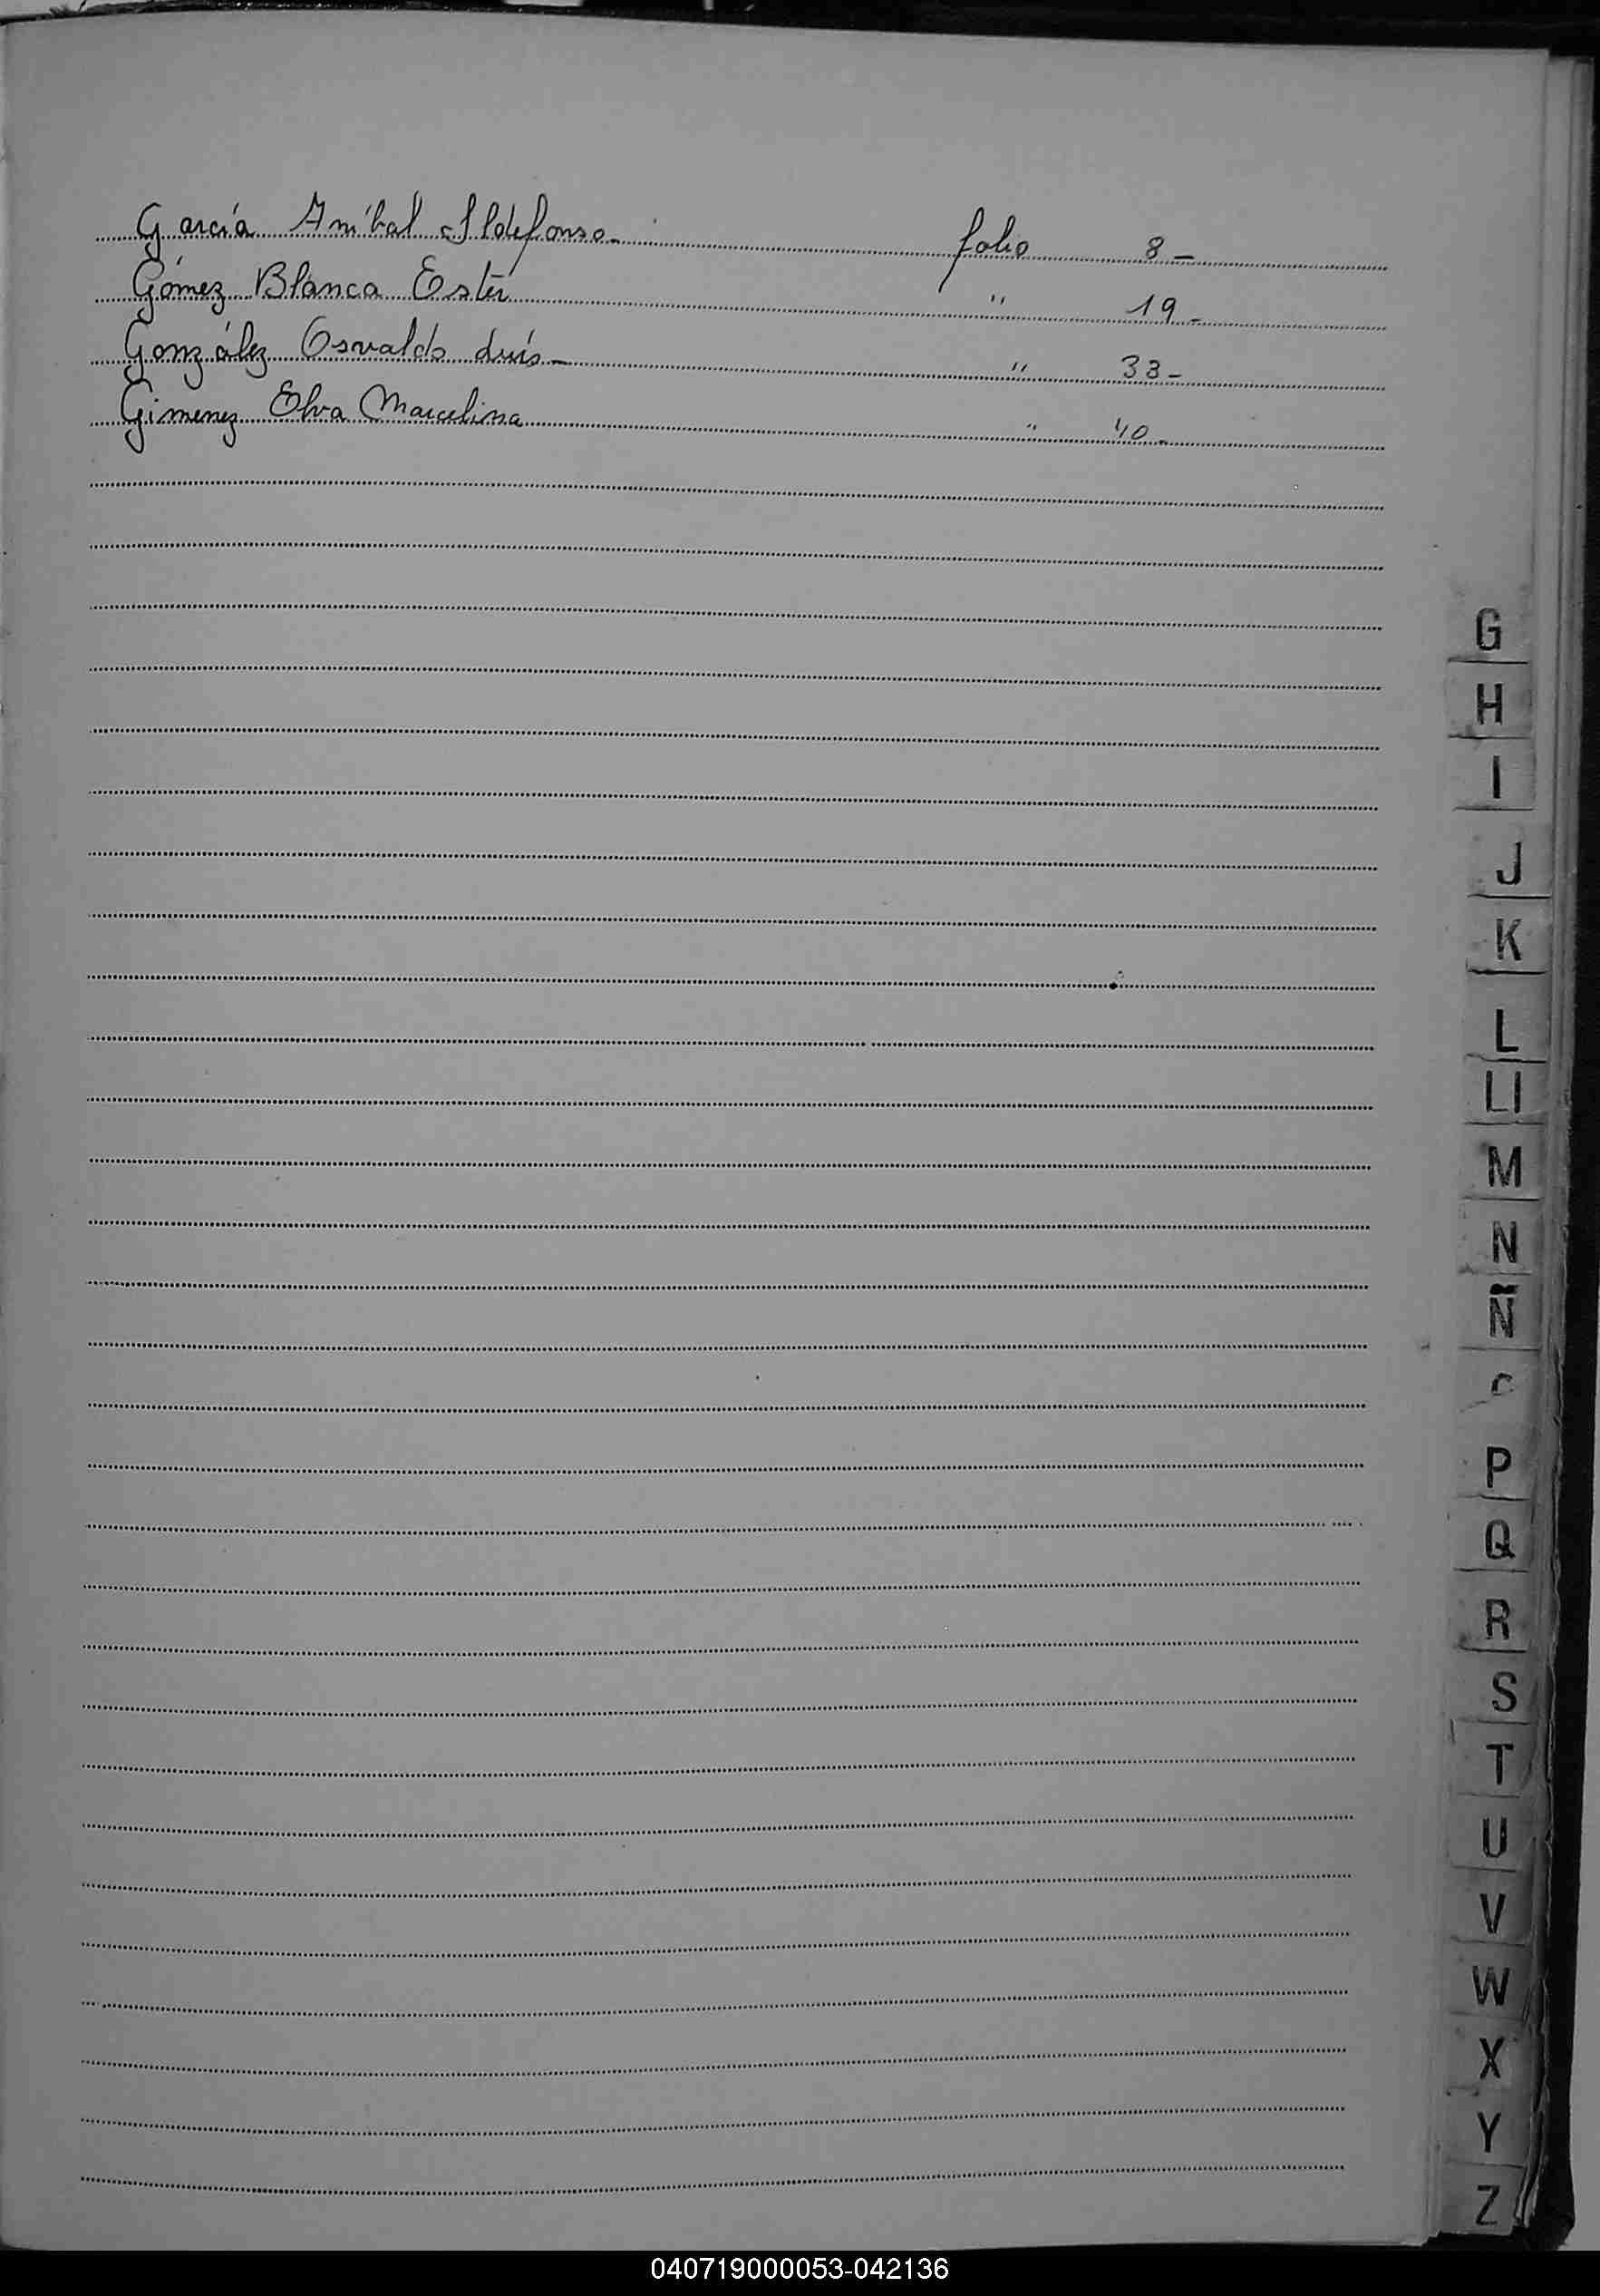 García Aníbal Ildefonso- folio 8-
Gómez Blanca Ester " 19-
González Osvaldo Luis- " 33-
Gimenez Elva Marcelina " 40-
G
H
I
J
K
L
Ll
M
N
Ñ
P
Q
R
S
T
U
V
W
X
Y
Z
040719000053-042136